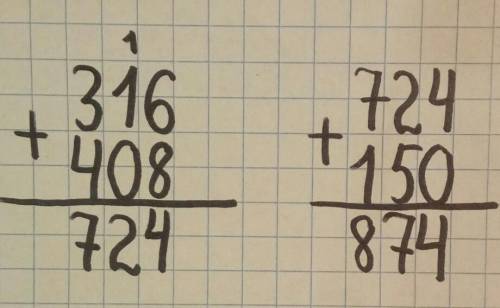 1
316
+
408
724
724
+
150
874